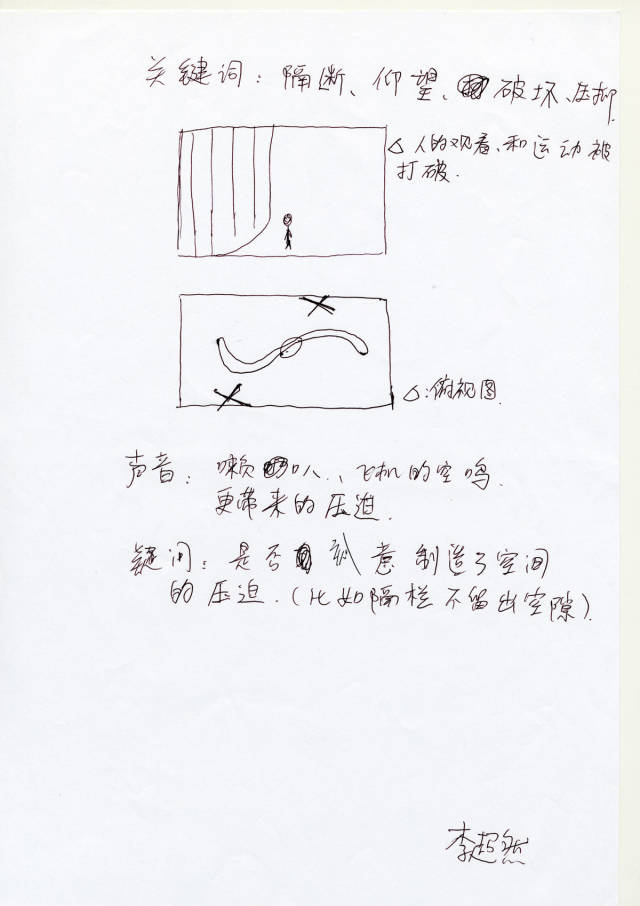 关键词：隔断、仰望、破坏、压抑.
△ 人的观看、和运动被
打破.
△：俯视图.
声音：喇叭、飞机的空鸣.
更带来的压迫.
疑问：是否刻意制造了空间
的压迫.（比如隔栏不留出空隙）.
李超然